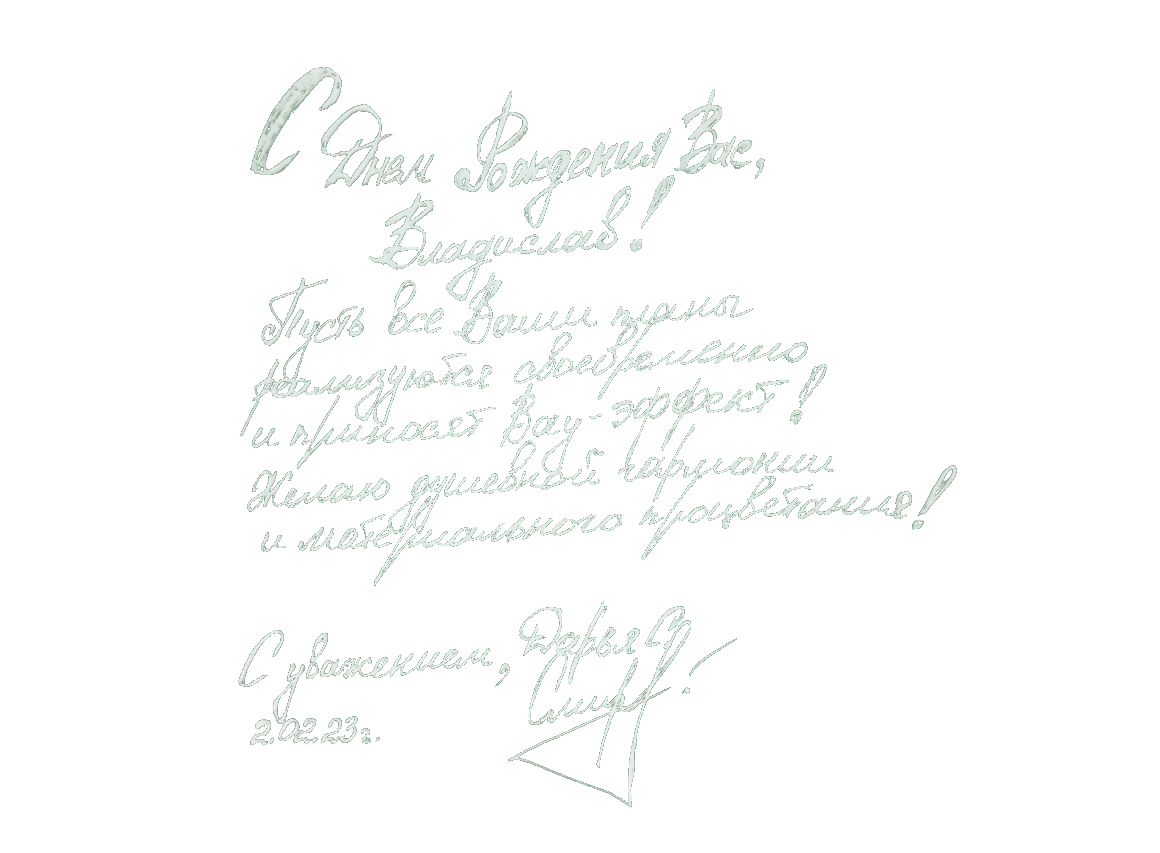 С Днем Рождения Вас,
Владислав!
Пусть все Ваши планы
реализуются своевременно
и приносят Вау-эффект!
Желаю душевной гармонии
и материального процветания!
С уважением, Дарья С.
2.02.23г.